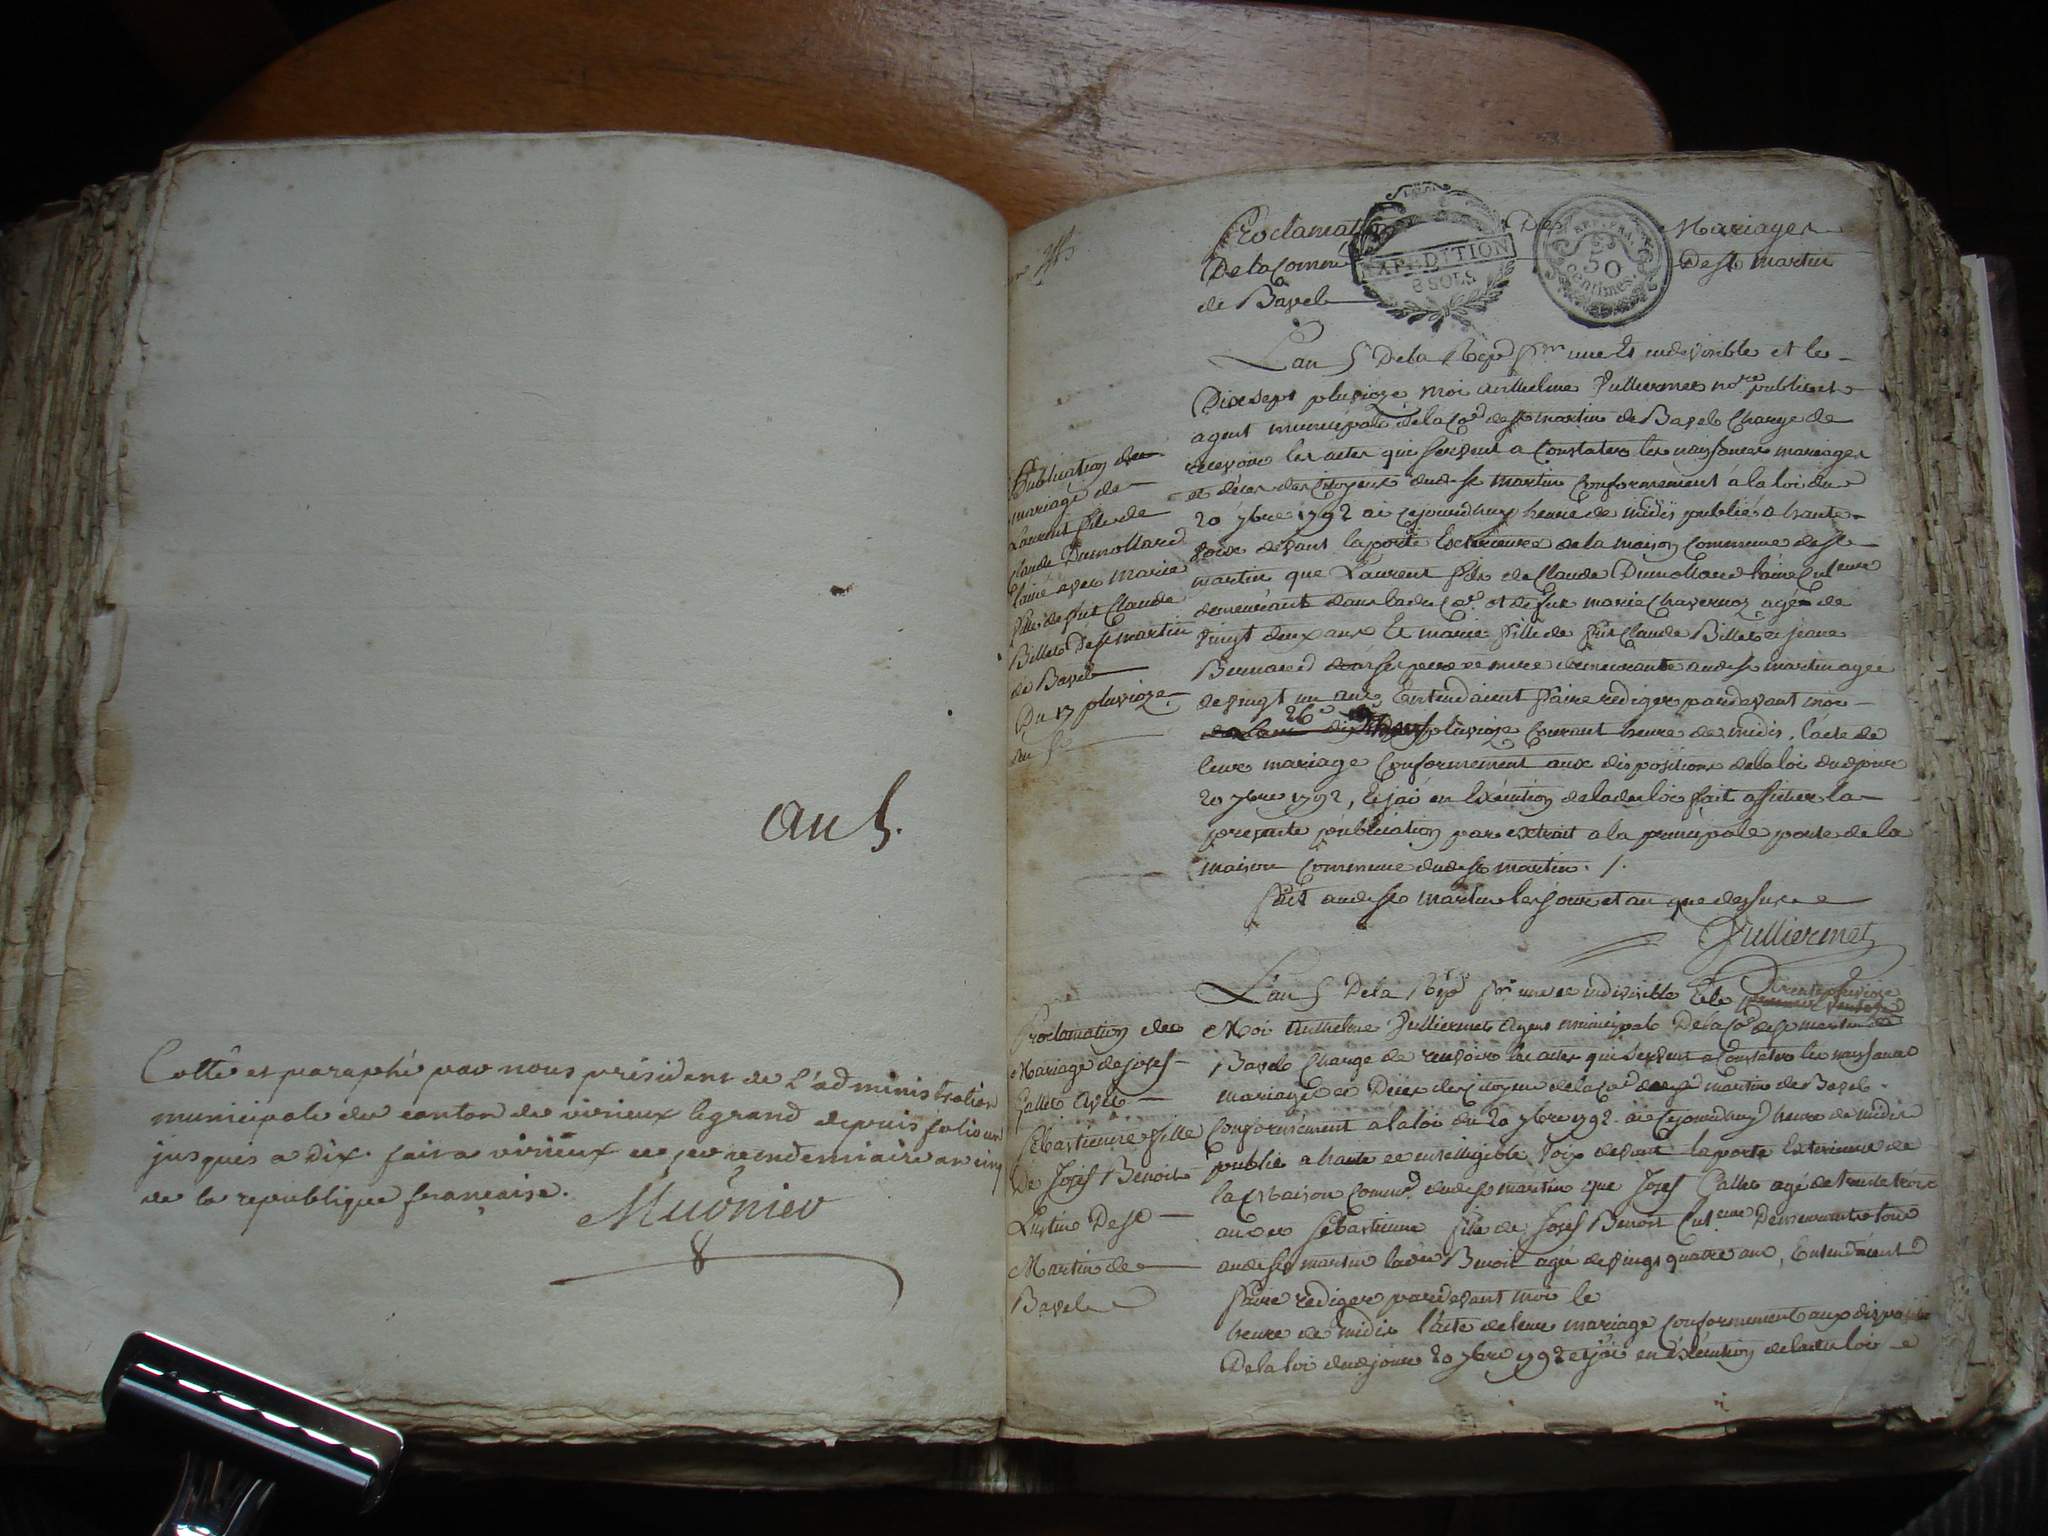 an 5.
Cotté et paraphé par nous président de l'administration
municipale du canton de virieux legrand depuis folio un
jusques a dix. fait a virieux ce vendemiaire an cinq
de la republique française.
Muônier
Proclamation Des Mariages
De la Comm De St martin
de Bavel
EXPEDITION
8 SOLS
REP. FRA.
50
centimes.
L'an 5 De la Rep fse une Et indivisible et le
Dix sept pluvioze moi anthelme Julliermet nore public et
agent municipal de la Coe de St martin de Bavel Charge de
recevoir les actes qui servent a Constater les naissances mariages
et décès des Citoyens dud St martin Conformement à la loi du
20 7bre 1792 ai cejourdhuy heure de midis publié a haute
voix devant la porte Exterieure de la maison Commune de St
martin que Laurent fils de Claude Dumollard lainé Culteur
demeurant dans lade Coe et de fut marie Chavernoz agé de
vingt deux ans Et marie fille de fut Claude Billet et jeane
Bernard ses pere et mere demeurante aud St martin agée
de vingt un ans Entendaient faire rediger pardevant moi
26 pluvioze Courant heure de midis, l'acte de
leur mariage Conformement aux dispositions de la loi dud jour
20 7bre 1792, Et jai en Exécution de lade loi fait afficher la
presente publication par extrait a la principale porte de la
maison Commune dud St martin. /.
Fait aud St martin les jour et an que dessus
Julliermet
Publication de
mariage de
Laurent fils de
Claude Dumollard
lainé avec Marie
fille de fut Claude
Billet De St martin
de Bavel
Du 17 pluvioze
an 5e
L'an 5 De la Rep fse une et indivisible Et le Trente pluvioze
Moi Anthelme Julliermet Agent municipal De la Coe de St martin de
Bavel Charge de recevoir les actes qui servent a Constater les naissances
mariages et Décès des Citoyens de la Coe de St martin de Bavel
Conformément a la loi du 20 7bre 1792. ai Cejourdhuy heure de midis
publié a haute et intelligible voix devant la porte Exterieure de
la Maison Comme dud St martin que Josef Gallet agé de trente trois
ans et Sebastienne fille de Josef Benoit Culteur Demeurante tous
aud St martin lade Benoit agée de vingt quatre ans, Entendaient
faire rédiger pardevant moi le
heure de midis l'acte de leur mariage Conformement aux disposition
De la loi dud jour 20 7bre 1792 et jai en Exécution de lade loi
Proclamation de
Mariage de Josef
Gallet Avec
Sébastienne fille
De Josef Benoit
De St
Martin de
Bavel